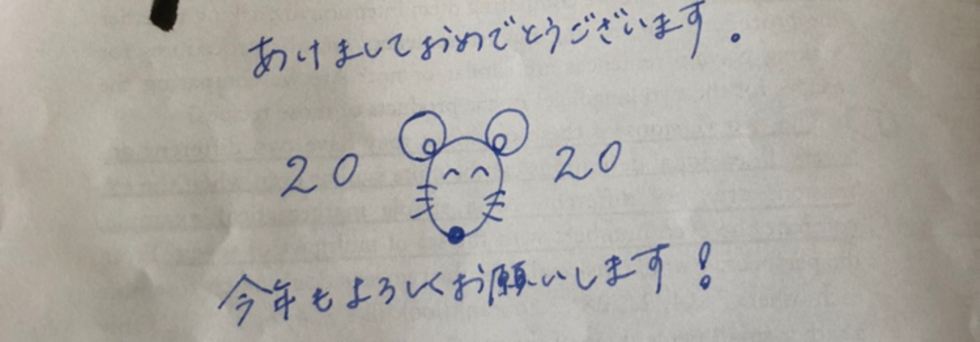 あけましておめでとうございます。
20 20
今年もよろしくお願いします!